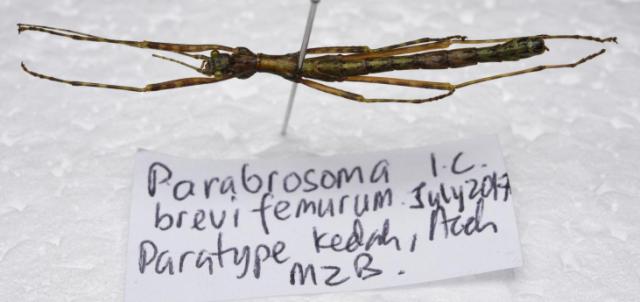 Parabrosoma I.C.
brevifemurum. July 2017
Paratype Kedah, Aceh
MZB.